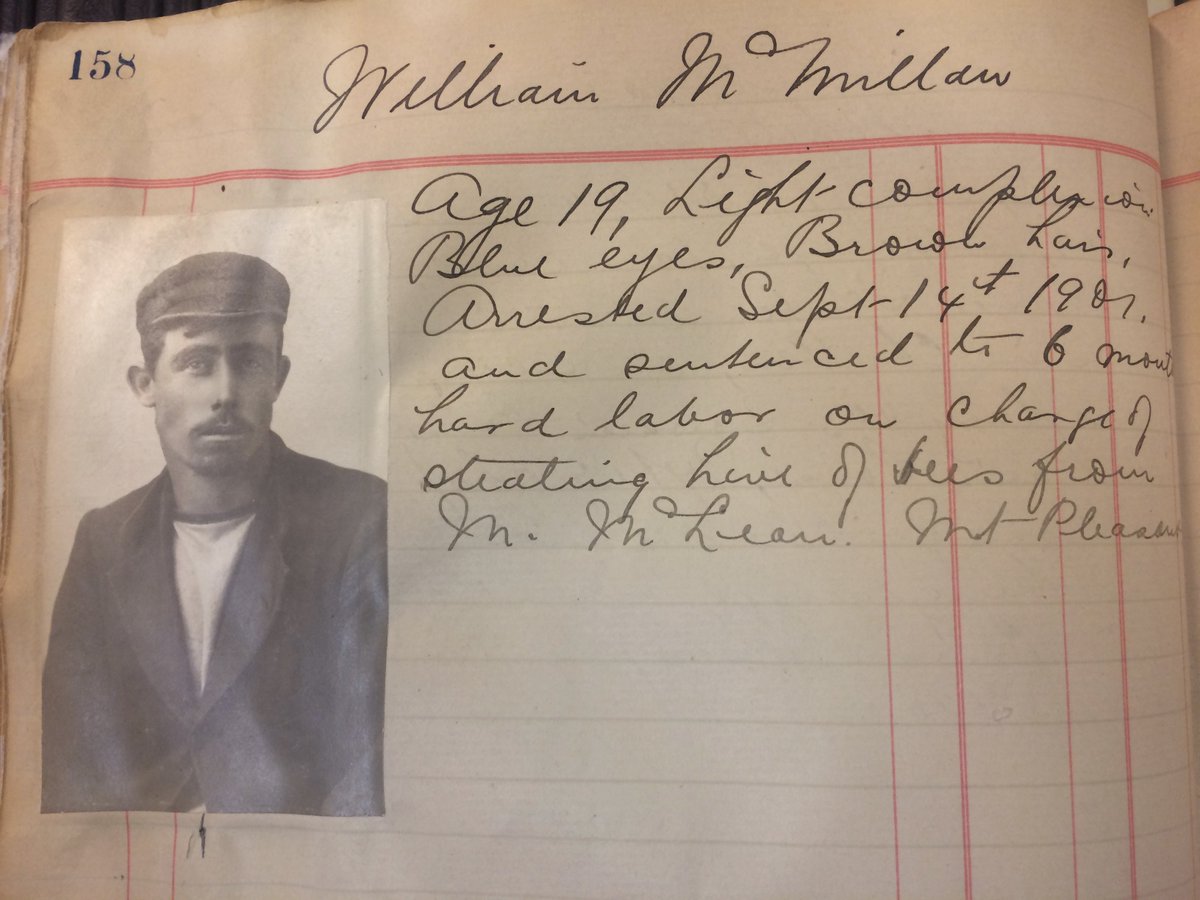 158
William McMillan
Age 19, Light complexion
Blue eyes, Brown hair,
Arrested Sept 14th
and sentenced to 6 mont
hard labor on charge of
stealing hive of bees from
M. McLean. Mt Pleasant